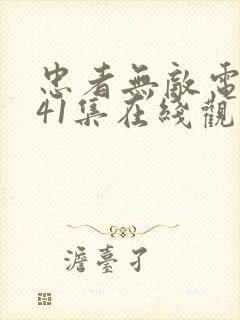 忠者無敵電
41集在綫觀
澹臺孑